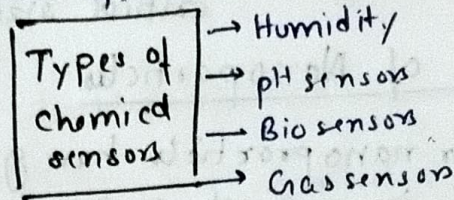 Types of
chemical
sensors
→ Humidity
→ pH sensors
→ Bio sensors
→ Gas sensors